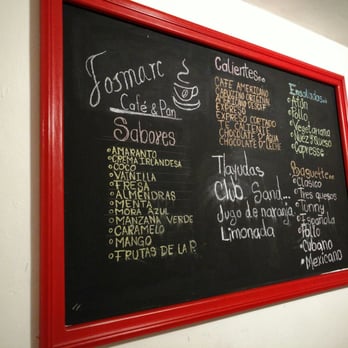 Josmarc
Café & Pan
Sabores
AMARANTO
CREMA IRLANDESA
COCO
VAINILLA
FRESA
ALMENDRAS
MENTA
MORA AZUL
MANZANA VERDE
CARAMELO
MANGO
FRUTAS DE LA P.
Calientes...
CAFE AMERICANO
CAPUCHINO ORIGINAL
EXPRESO CORTADO
TE CALIENTE
CHOCOLATE D' AGUA
CHOCOLATE D' LECHE
Tlayudas
Club Sand...
Jugo de naranja
Limonada
Ensaladas...
Atún
Pollo
Vegetariana
Nuez y queso
Capresse
Baguette...
Clásico
Tres quesos
Tunny
Española
Pollo
Cubano
Mexicano